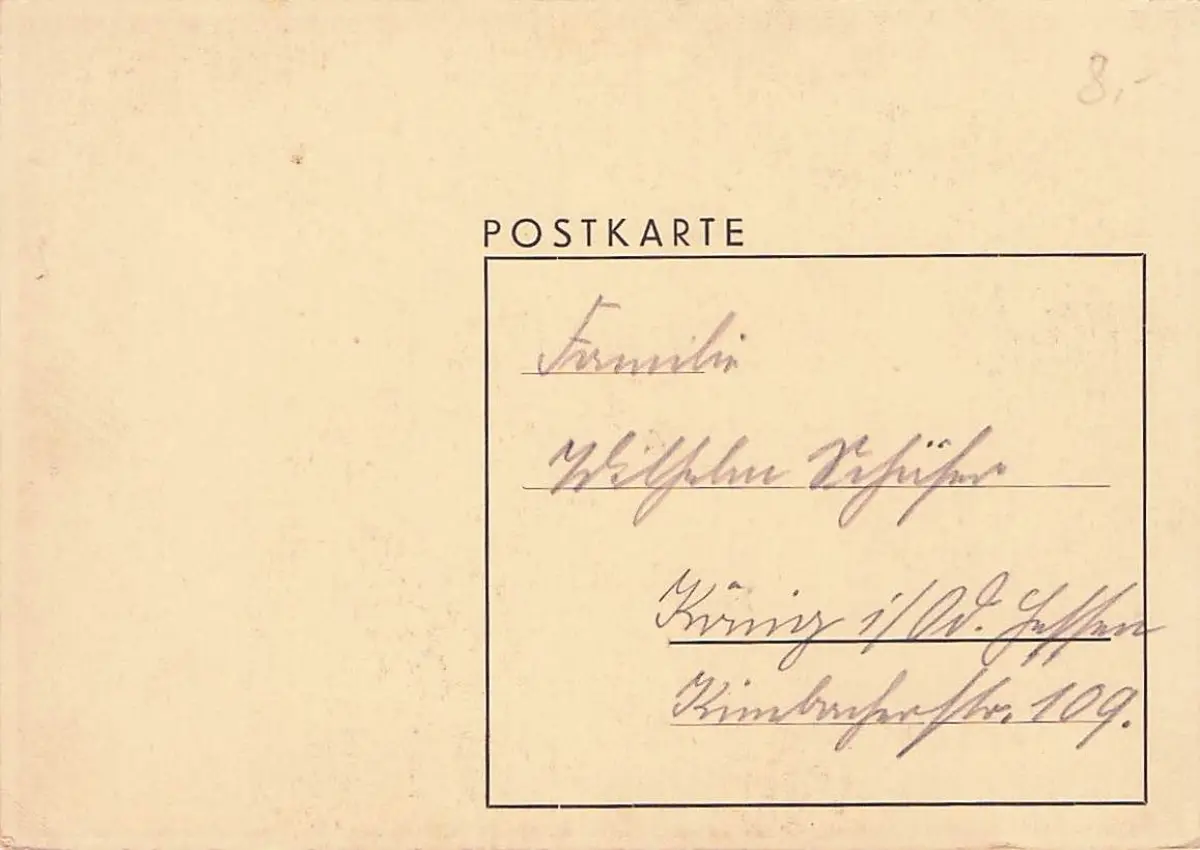 8,-
POSTKARTE
Familie
Wilhelm Schäfer
König i/Od. Hessen
Kimbacherstr. 109.